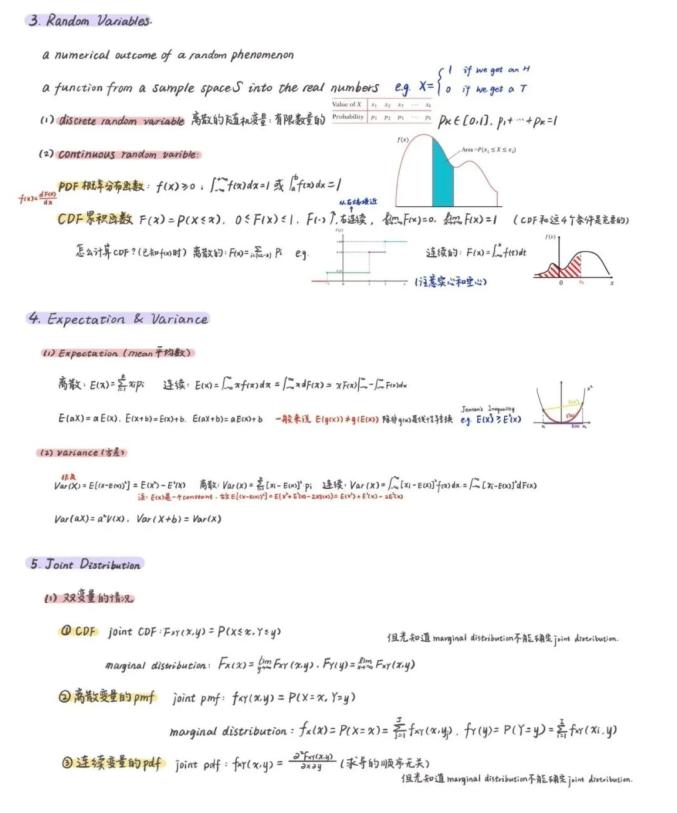 3. Random Variables.
a numerical outcome of a random phenomenon
a function from a sample space S into the real numbers e.g. X={ 1 if we get an H
0 if we get a T
Value of X x₁ x₂ x₃ ⋯ xₖ
(1) discrete random variable 离散的随机变量:有限数量的 Probability p₁ p₂ p₃ ⋯ pₖ pₖ∈[0,1], p₁+⋯+pₖ=1
(2) continuous random varible:
f(x)
Area=P(x₁≤X≤x₂)
PDF 概率分布函数: f(x)≥0, ∫f(x)dx=1 或 ∫ₐᵇf(x)dx=1
f(x)=dF(x)/dx
CDF 累积函数 F(x)=P(X≤x), 0≤F(x)≤1, F(·)↑, 右连续, lim F(x)=0, lim F(x)=1 (CDF和这4个条件是充要的)
怎么计算CDF?(已知f(x)时) 离散的: F(x)=Σ Pᵢ e.g. 连续的: F(x)=∫f(t)dt
(注意实心和空心)
4. Expectation & Variance
(1) Expectation (mean 平均数)
离散: E(x)=Σxᵢpᵢ 连续: E(x)=∫xf(x)dx=∫xdF(x)=xF(x)|-∫F(x)dx
E(aX)=aE(X), E(X+b)=E(x)+b, E(aX+b)=aE(x)+b 一般来说 E(g(x))≠g(E(x)) 除非g(x)是线性转换 Jensen's Inequality
e.g. E(x²)≥E²(x)
(2) Variance (方差)
Var(X)=E[(x-E(x))²]=E(x²)-E²(x) 离散: Var(x)=Σ[xᵢ-E(x)]²pᵢ 连续: Var(x)=∫[xᵢ-E(x)]²f(x)dx=∫[xᵢ-E(x)]²dF(x)
注: E(x)是一个constant,
Var(aX)=a²V(x), Var(X+b)=Var(x)
5. Joint Distribution
(1) 双变量的情况
① CDF joint CDF: Fxy(x,y)=P(X≤x, Y≤y)
但光知道marginal distribution不能确定joint distribution.
marginal distribution: Fx(x)=lim Fxy(x,y), Fy(y)=lim Fxy(x,y)
② 离散变量的pmf joint pmf: fxy(x,y)=P(X=x, Y=y)
marginal distribution: fx(x)=P(X=x)=Σfxy(x,yⱼ), fy(y)=P(Y=y)=Σfxy(xᵢ,y)
③ 连续变量的pdf joint pdf: fxy(x,y)=∂²Fxy(x,y)/∂x∂y (求导的顺序无关)
但光知道marginal distribution不能确定joint distribution.